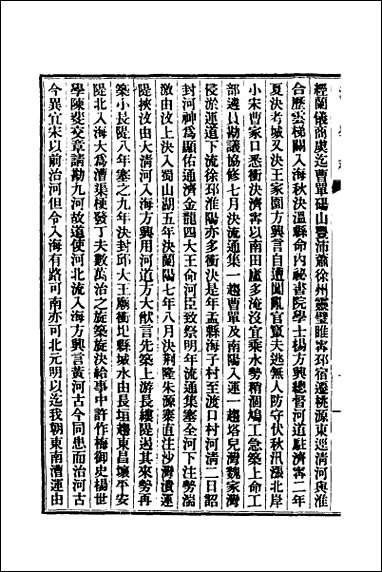 經蘭儀商虞迄曹單碭山豐沛蕭徐州靈璧睢寧邳宿遷桃源東逕清河與淮
合歷雲梯關入海秋決溫縣命內祕書院學士楊方興總督河道駐濟寧二年
夏決考城又決王家園方興言自遭闖亂官竄夫逃無人防守伏秋汛漲北岸
小宋曹家口悉衝決濟寧以南田廬多淹沒宜乘水勢稍涸鳩工急築上命工
部遴員勘議協修七月決流通集一趨曹單及南陽入運一趨塔兒灣魏家灣
侵淤運道下流徐邳淮陽亦多衝決是年孟縣海子村至渡口村河清二日詔
封河神為顯佑通濟金龍四大王命河臣致祭明年流通集塞全河下注勢湍
激由汶上決入蜀山湖五年決蘭陽七年八月決荊隆朱源寨直往沙灣潰運
隄挾汶由大清河入海方興用河道方大猷言先築上游長縷隄遏其來勢再
築小長隄八年塞之九年決封邱大王廟衝圮縣城水由長垣趨東昌壞平安
隄北入海大為漕渠梗發丁夫數萬治之旋築旋決給事中許作梅御史楊世
學陳斐交章請勘九河故道使河北流入海方興言黃河古今同患而治河古
今異宜宋以前治河但令入海有路可南亦可北元明以迄我朝東南漕運由